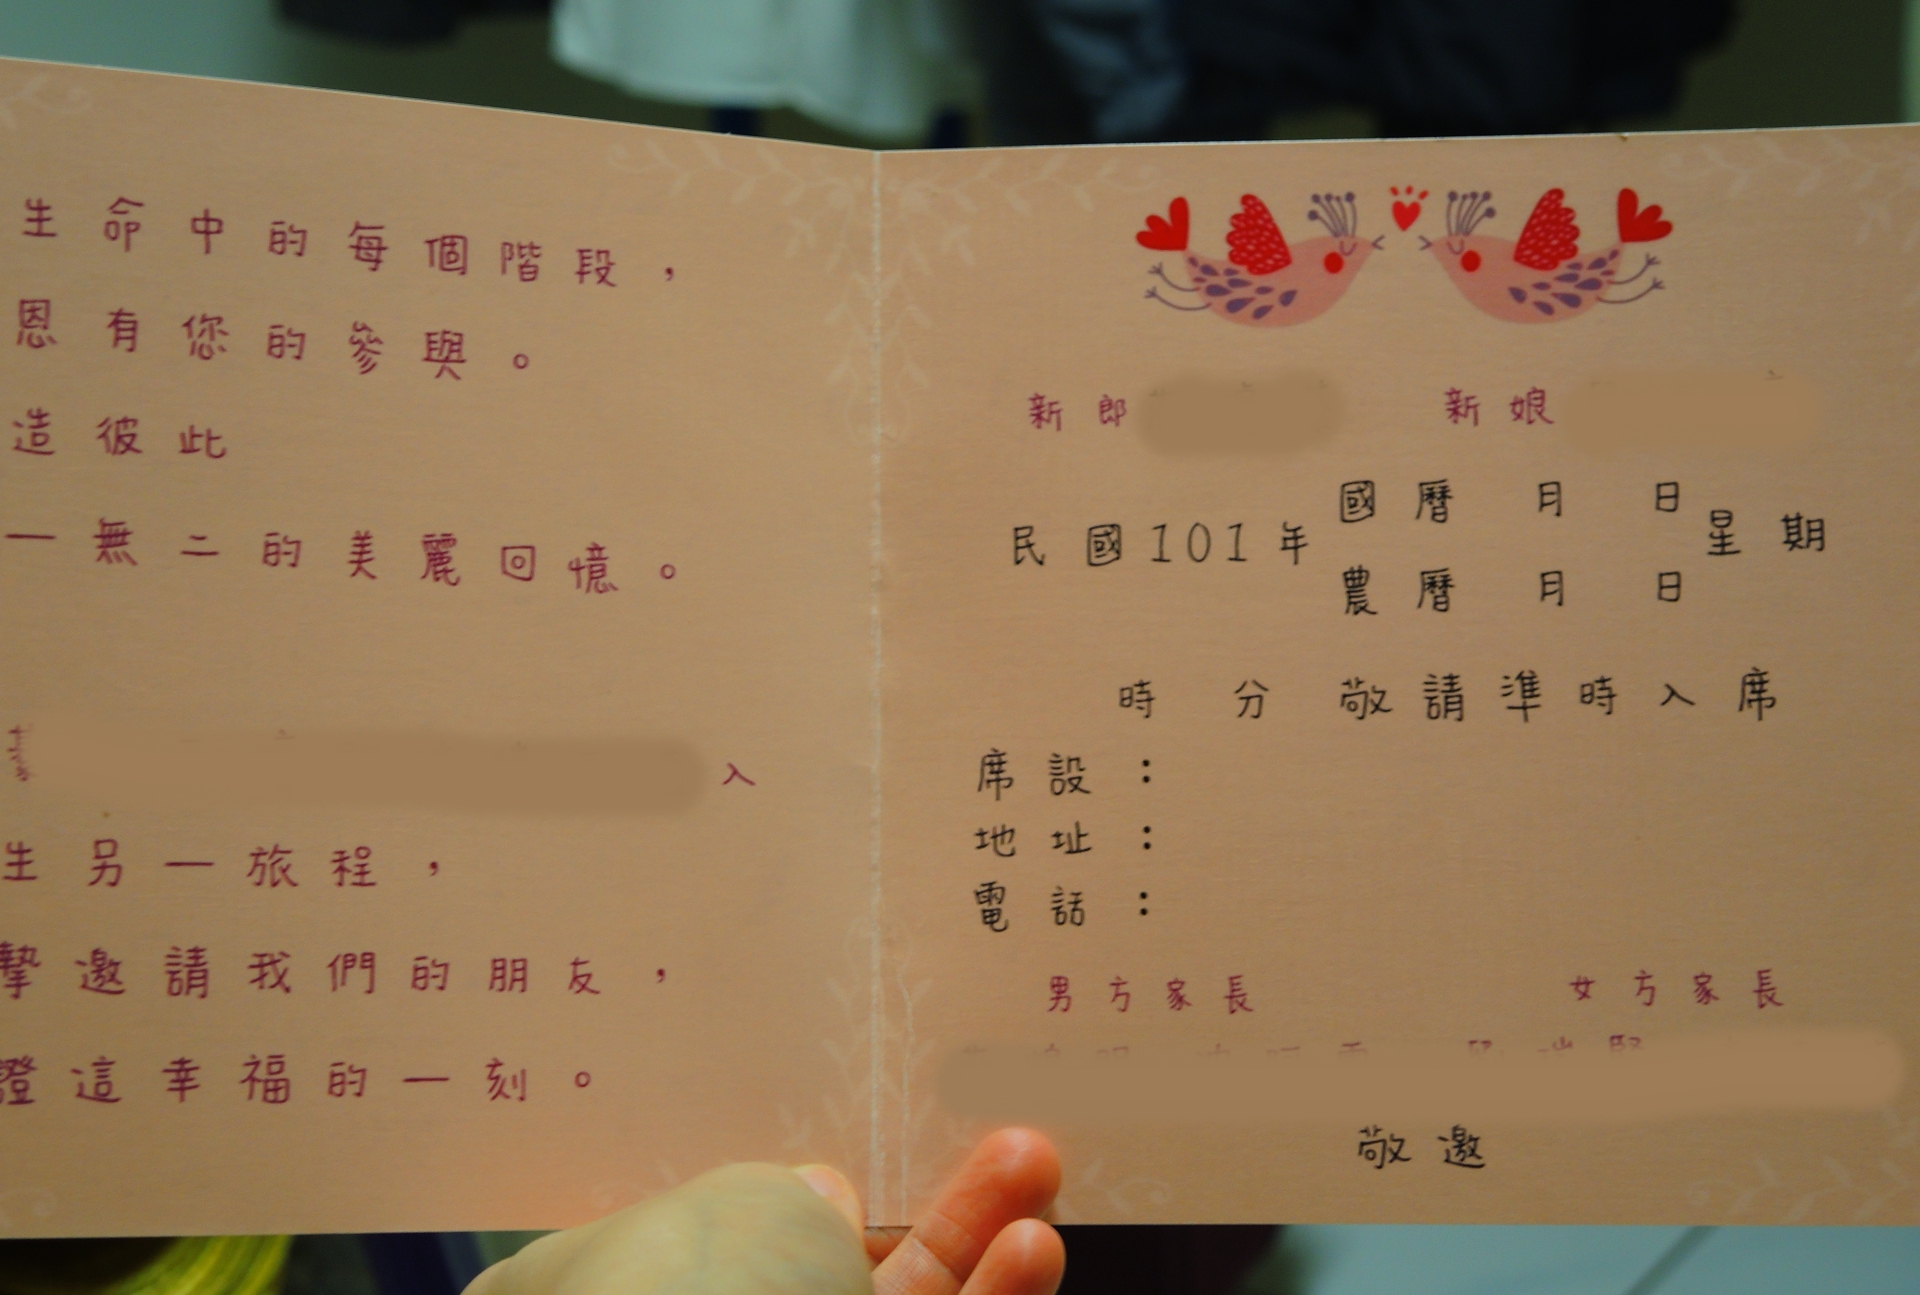 生命中的每個階段，
恩有您的參與。
造彼此
一無二的美麗回憶。
入
生另一旅程，
摯邀請我們的朋友，
證這幸福的一刻。
新郎 新娘
民國101年 國曆 月 日 星期
農曆 月 日
時 分 敬請準時入席
席設：
地址：
電話：
男方家長 女方家長
敬邀